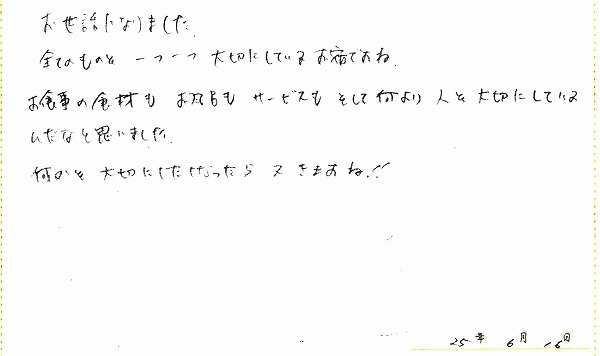 お世話になりました。
全てのものを 一つ一つ 大切にしている お宿ですね。
お食事の食材も お風呂も サービスも そして何より 人を大切にしている
んだなと思いました。
何かを 大切にしたくなったら 又 きますね!!
25年 6月 16日